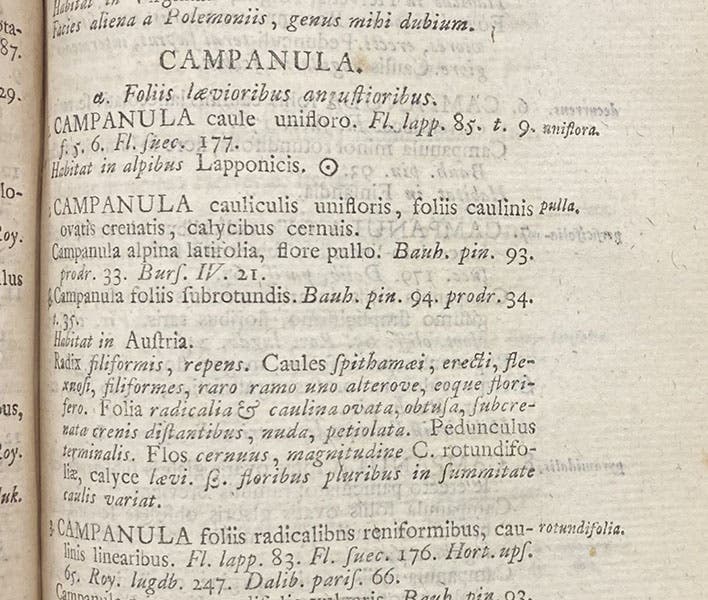 Habitat in
Facies aliena a Polemoniis, genus mihi dubium.
CAMPANULA.
α. Foliis lævioribus angustioribus.
CAMPANULA caule unifloro. Fl. lapp. 85. t. 9. uniflora.
f. 5. 6. Fl. ſuec. 177.
Habitat in alpibus Lapponicis. ☉
CAMPANULA cauliculis unifloris, foliis caulinis pulla.
ovatis crenatis, calycibus cernuis.
Campanula alpina latifolia, flore pullo. Bauh. pin. 93.
prodr. 33. Burſ. IV. 21.
Campanula foliis ſubrotundis. Bauh. pin. 94. prodr. 34.
t. 35.
Habitat in Auſtria.
Radix filiformis, repens. Caules ſpithamæi, erecti, fle-
xuoſi, filiformes, raro ramo uno alterove, eoque flori-
fero. Folia radicalia & caulina ovata, obtuſa, ſubcre-
nata crenis diſtantibus, nuda, petiolata. Pedunculus
terminalis. Flos cernuus, magnitudine C. rotundifo-
liæ, calyce lævi. β. floribus pluribus in ſummitate
caulis variat.
3. CAMPANULA foliis radicalibns reniformibus, cau- rotundifolia.
linis linearibus. Fl. lapp. 83. Fl. ſuec. 176. Hort. upſ.
65. Roy. lugdb. 247. Dalib. pariſ. 66.
Bauh. pin. 93.
87.
29.
lo-
Roy.
llus
ous,
Roy.
luk.